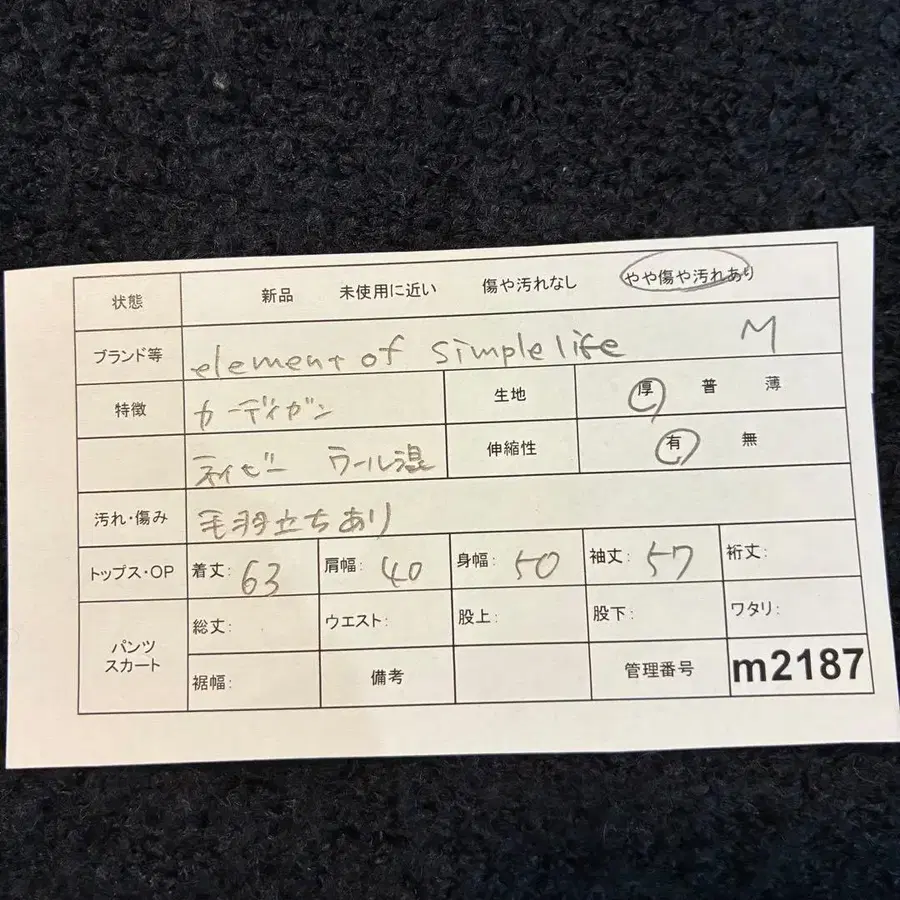 状態 新品 未使用に近い 傷や汚れなし やや傷や汚れあり
ブランド等 element of simple life M
特徴 カーディガン 生地 厚 普 薄
ネイビー ウール混 伸縮性 有 無
汚れ・傷み 毛羽立ちあり
トップス・OP 着丈: 63 肩幅: 40 身幅: 50 袖丈: 57 裄丈:
パンツ スカート 総丈: ウエスト: 股上: 股下: ワタリ:
裾幅: 備考 管理番号 m2187